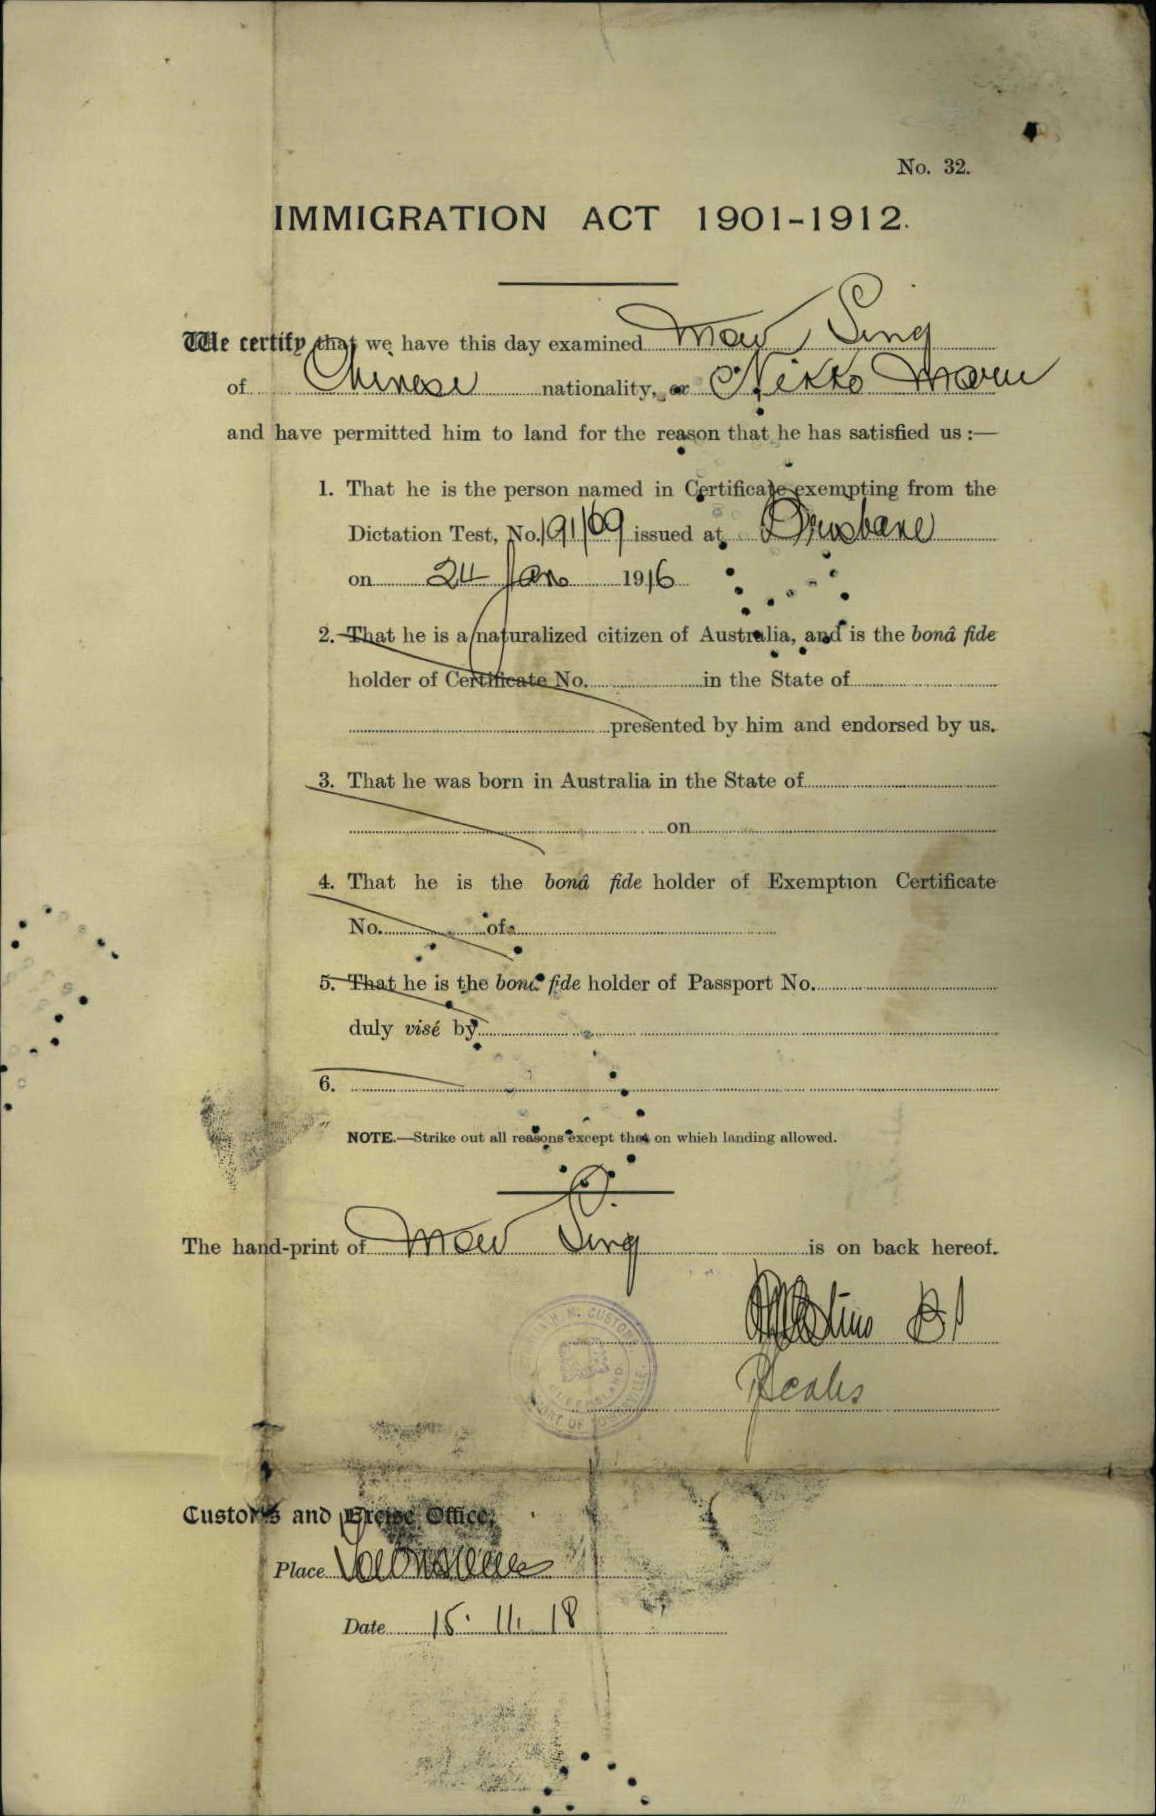 No. 32.
IMMIGRATION ACT 1901-1912.
We certify that we have this day examined Mow Sing
of Chinese nationality, ex Nikko Maru
and have permitted him to land for the reason that he has satisfied us :—
1. That he is the person named in Certificate exempting from the
Dictation Test, No. 191/09 issued at Brisbane
on 24 Jan 1916
2. That he is a naturalized citizen of Australia, and is the bonâ fide
holder of Certificate No. in the State of
presented by him and endorsed by us.
3. That he was born in Australia in the State of
on
4. That he is the bonâ fide holder of Exemption Certificate
No. of
5. That he is the bonâ fide holder of Passport No.
duly visé by
6.
NOTE.—Strike out all reasons except that on which landing allowed.
The hand-print of Mow Sing is on back hereof.
H. M. CUSTOMS
QUEENSLAND
PORT OF TOWNSVILLE
Customs and Excise Office,
Place Townsville
Date 15. 11. 18